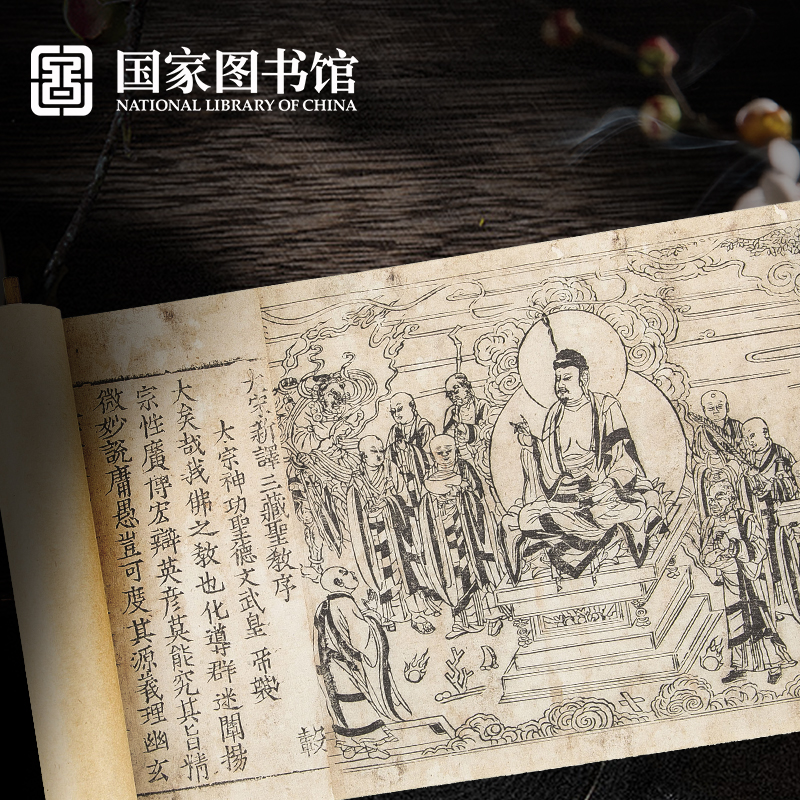 国家图书馆
NATIONAL LIBRARY OF CHINA
大宋新譯三藏聖教序
太宗神功聖德文武皇帝製
大矣哉我佛之教也化導群迷闡揚
宗性廣博宏辯英彥莫能究其旨精
微妙說庸愚豈可度其源義理幽玄